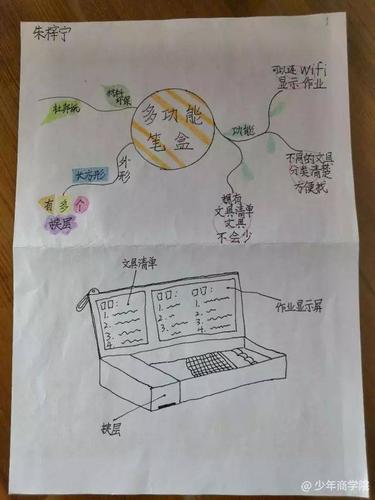 朱梓宁
多功能
笔盒
材料
环保
杜邦纸
外
形
长方形
有多个
夹层
功能
可以连wifi
显示作业
不同的文具
分类清楚
方便找
拥有
文具清单
文具
不会少
文具清单
作业显示屏
口口:
1.
2.
3.
4.
口口:
1.
2.
3.
口口:
1.
2.
3.
4.
夹层
@少年商学院